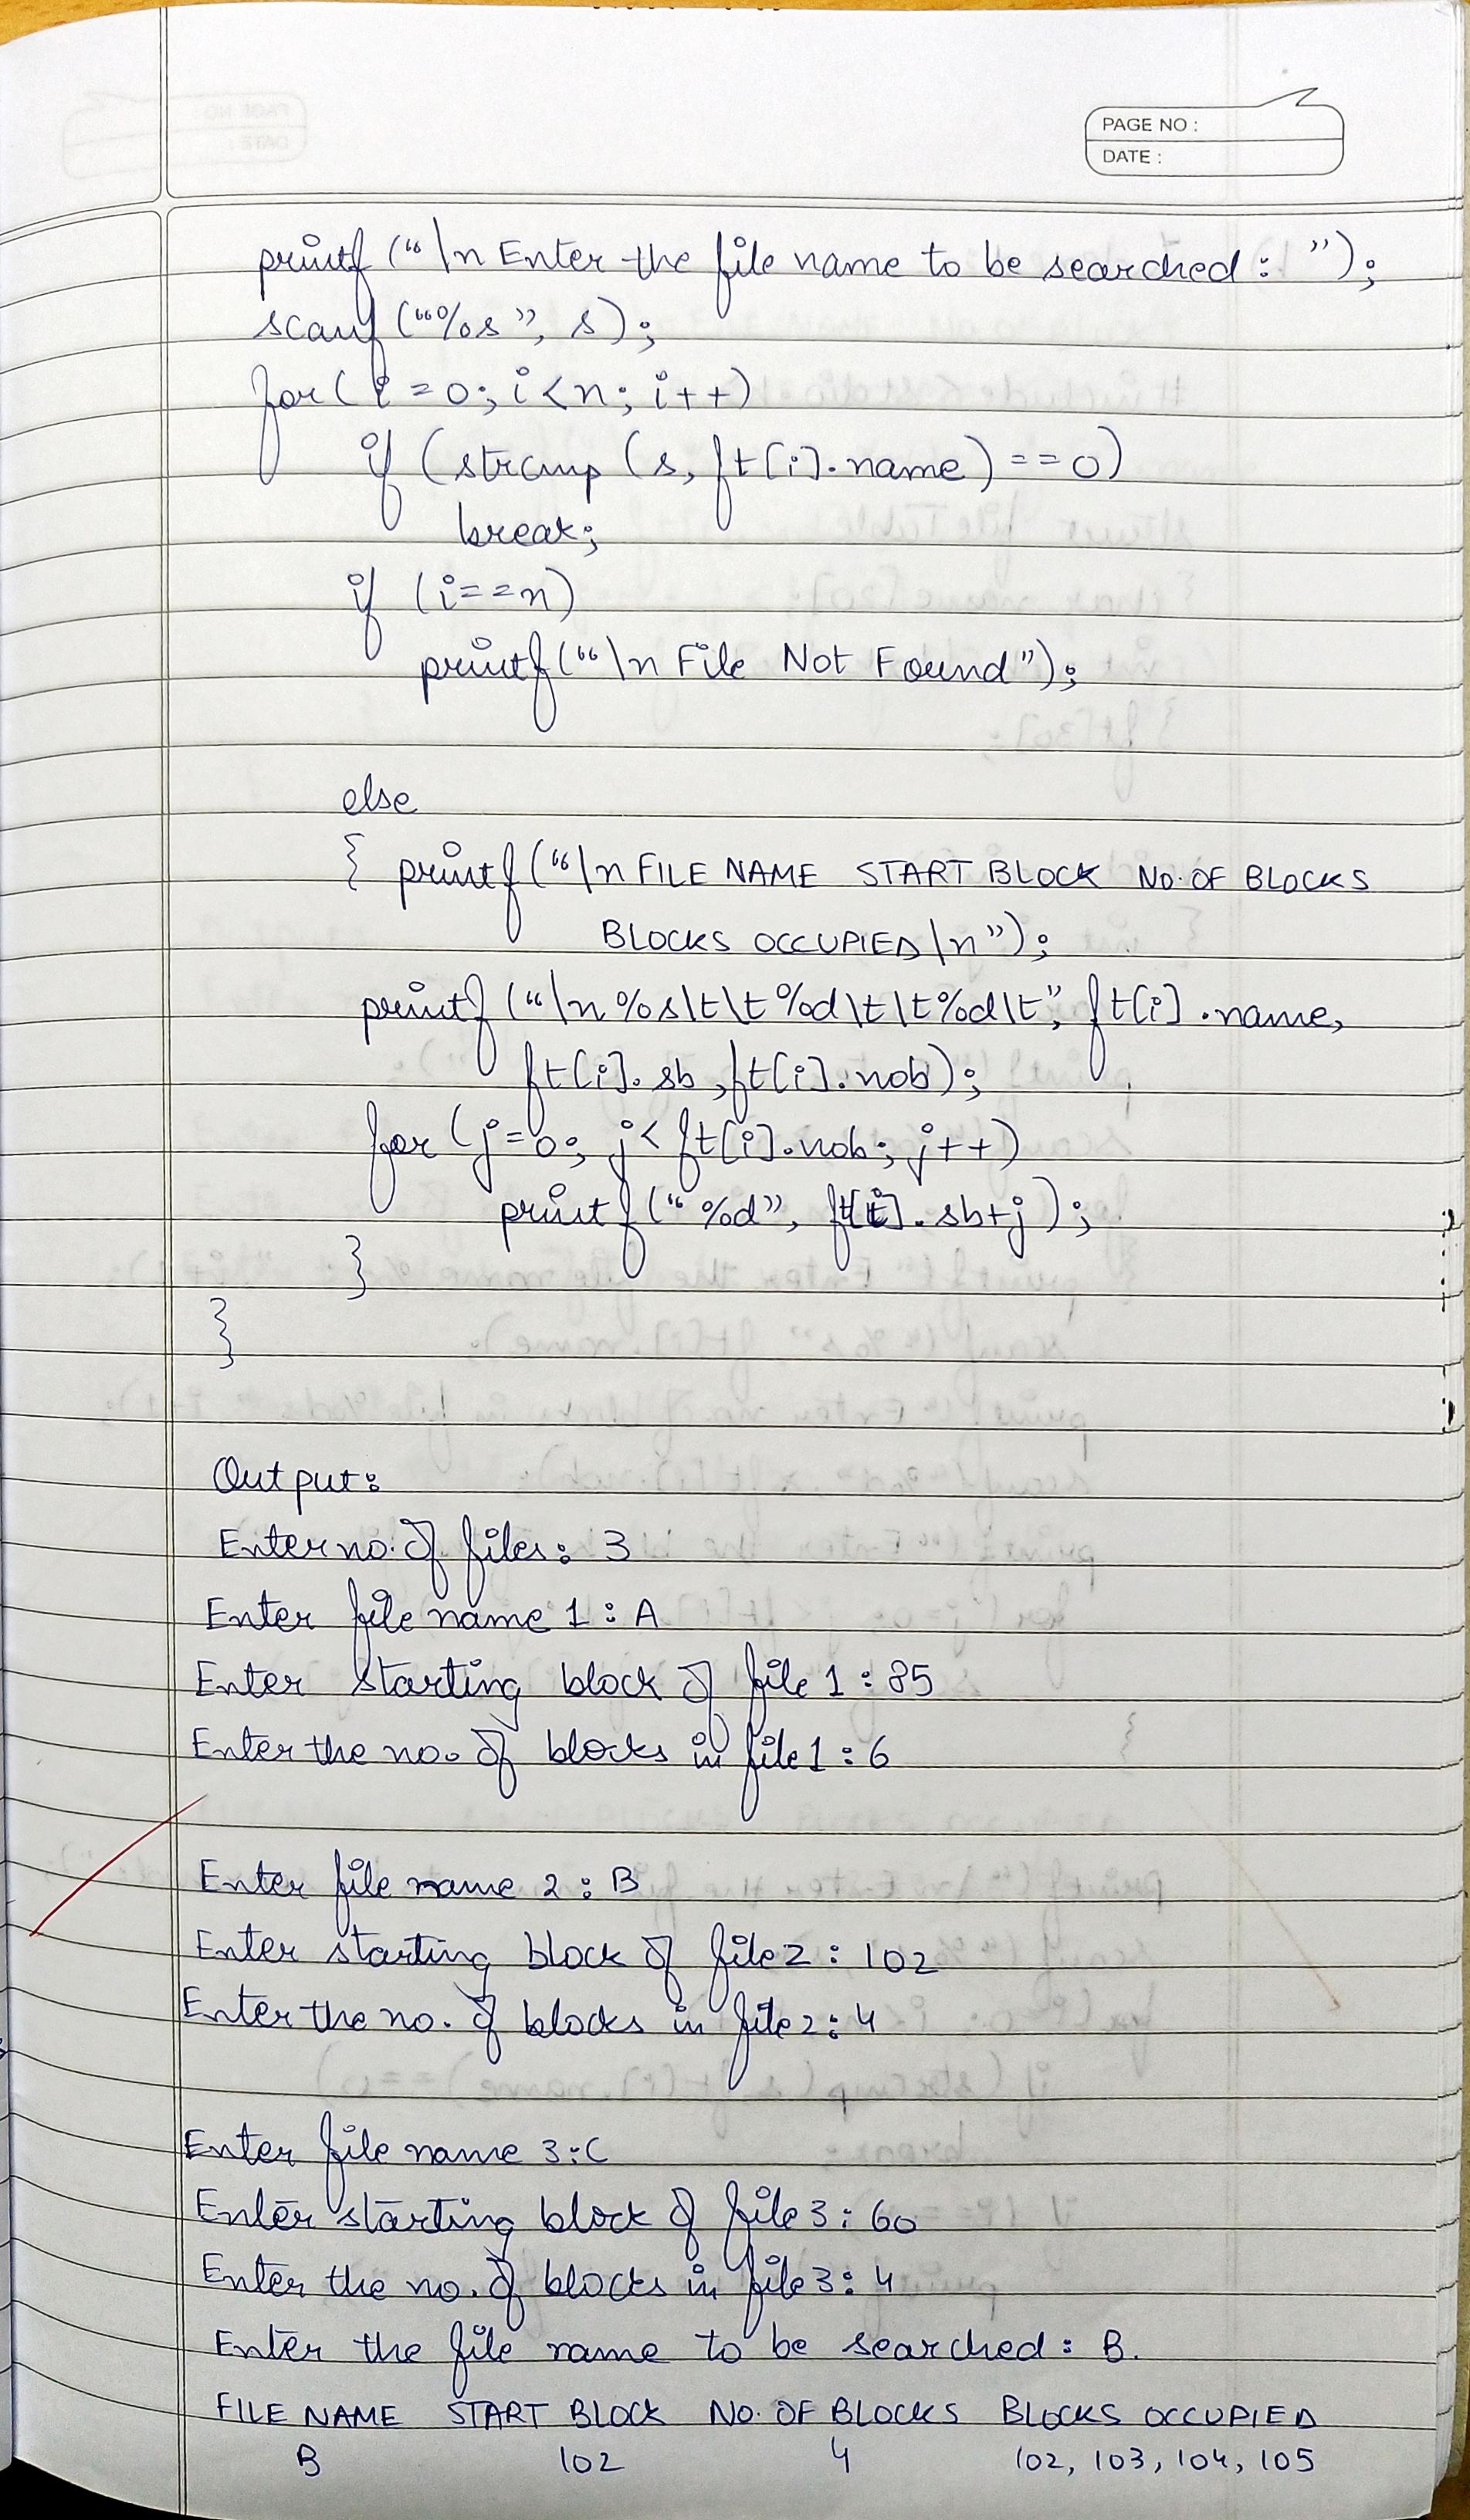 PAGE NO :
DATE :
printf ("\n Enter the file name to be searched : ");
scanf ("%s", s);
for( i = 0; i < n; i++)
if (strcmp (s, ft[i].name) == 0)
break;
if (i==n)
printf("\n File Not Found");
else
{ printf("\n FILE NAME START BLOCK NO. OF BLOCKS
BLOCKS OCCUPIED \n");
printf ("\n %s\t\t %d\t\t%d\t", ft[i].name,
ft[i].sb, ft[i].nob);
for (j=0; j< ft[i].nob; j++)
printf ("%d", ft[i].sb+j);
}
}
Output:
Enter no. of files: 3
Enter file name 1 : A
Enter starting block of file 1 : 85
Enter the no. of blocks in file 1 : 6
Enter file name 2 : B
Enter starting block of file 2 : 102
Enter the no. of blocks in file 2 : 4
Enter file name 3 : C
Enter starting block of file 3 : 60
Enter the no. of blocks in file 3 : 4
Enter the file name to be searched : B.
FILE NAME START BLOCK NO. OF BLOCKS BLOCKS OCCUPIED
B 102 4 102, 103, 104, 105